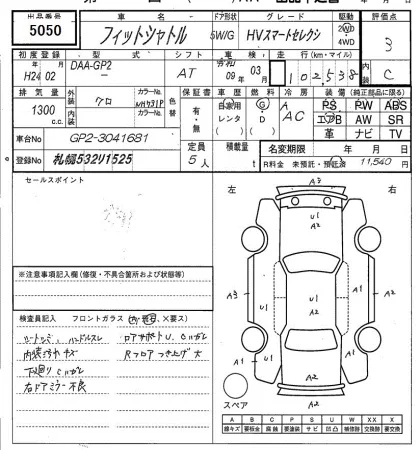 出品番号 車名 ドア形状 グレード 駆動 評価点
5050 フィットシャトル 5W/G HVスマートセレクシ 2WD 4WD 3
初度登録 型式 シフト 車検 走行(km・マイル) 内装
H24 02 DAA-GP2 - AT 令和 09 03 102,538 C
排気量 外装 クロ カラーNo. NH731P 色替 保証書 車歴 燃料 冷房 装備(純正部品に限る)
1300 c.c. 内装 カラーNo. 有・無 自家用 レンタ G D AC PS PW ABS
エアB AW SR
革 ナビ TV
車台No GP2-3041681 定員 積載量 名変期限 年 月 日
登録No 札幌532り1525 5人 t R料金 未預託・預託済 11,540 円
セールスポイント
左 右
※注意事項記入欄(修復・不具合箇所および状態等)
検査員記入 フロントガラス
シートシミ ハンドルスレ
内装ヨゴレ キズ
下廻りサビ
右ドアミラー不良
ロアサポートU.
Rフロアつき上げ大
A3
U1
A2
A2
A3 U1 U1 A1
A1 A2 A1
A2
スペア
A B C P S U W X XX
線キズ 要板金 腐蝕 要塗装 サビ 凹凸 補修跡 交換跡 要交換